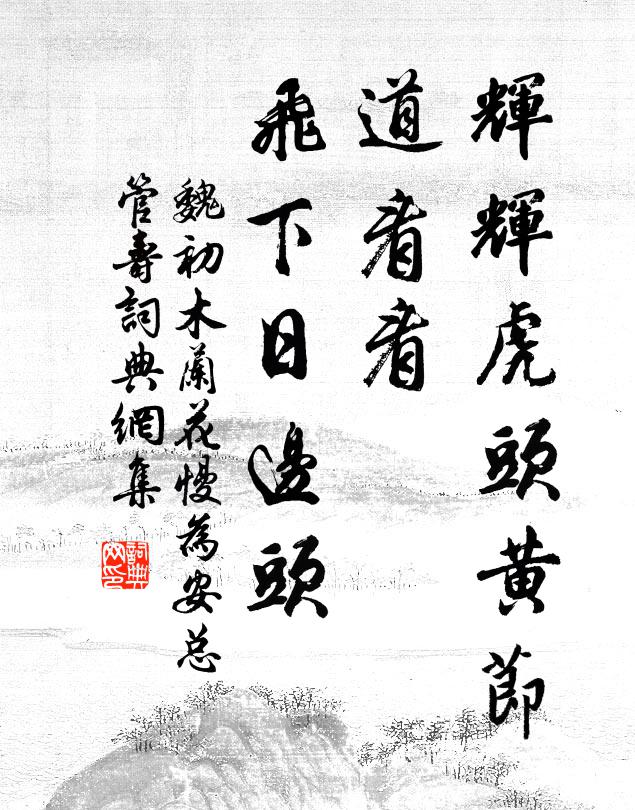 輝輝虎頭黃節
道看看
飛下日邊頭
魏初木蘭花慢為安总
管壽詞典網集
詞典网印